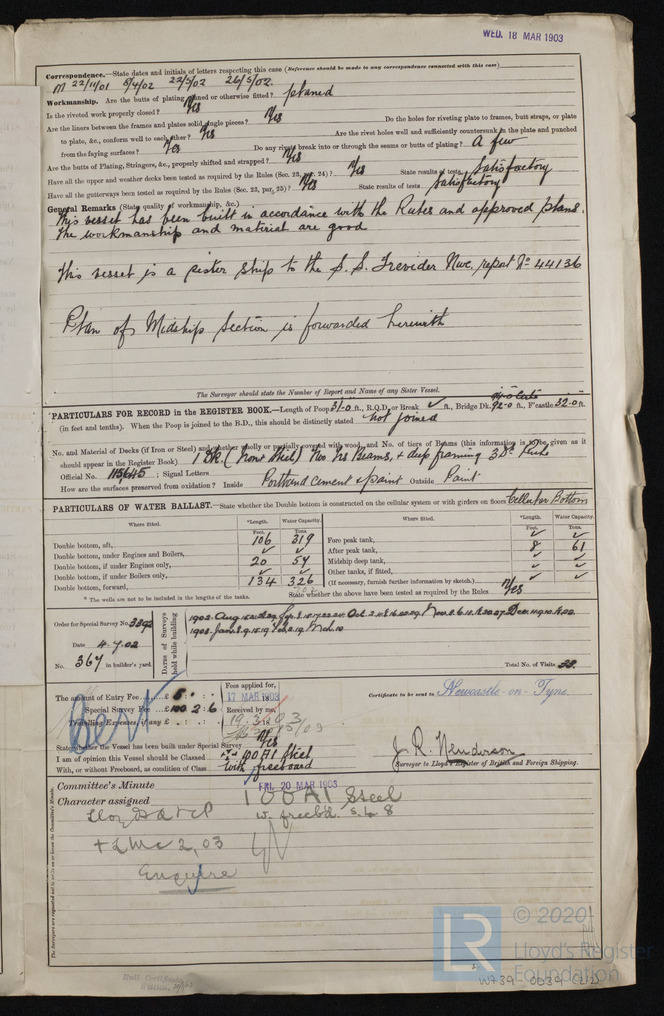 WED. 18 MAR 1903
Correspondence.—State dates and initials of letters respecting this case (Reference should be made to any correspondence connected with this case)
M 22/11/01 8/4/02 22/5/02 26/5/02.
Workmanship. Are the butts of plating planed or otherwise fitted? planed
Is the riveted work properly closed? Yes
Are the liners between the frames and plates solid single pieces? Yes Do the holes for riveting plate to frames, butt straps, or plate
to plate, &c., conform well to each other? Yes Are the rivet holes well and sufficiently countersunk in the plate and punched
from the faying surfaces? Yes Do any rivets break into or through the seams or butts of plating? A few
Are the butts of Plating, Stringers, &c., properly shifted and strapped? Yes
Have all the upper and weather decks been tested as required by the Rules (Sec. 23, par. 24)? Yes State results of tests Satisfactory
Have all the gutterways been tested as required by the Rules (Sec. 23, par. 25)? Yes State results of tests Satisfactory
General Remarks (State quality of workmanship, &c.)
This vessel has been built in accordance with the Rules and approved plans.
The workmanship and material are good
This vessel is a sister ship to the S.S. Trevider Nwc. report No 44136
Plan of Midship Section is forwarded herewith
The Surveyor should state the Number of Report and Name of any Sister Vessel.
PARTICULARS FOR RECORD in the REGISTER BOOK.—Length of Poop 31.0 ft., R.Q.D. or Break ✓ ft., Bridge Dk. 92.0 ft., F'castle 32.0 ft.
(in feet and tenths). When the Poop is joined to the B.D., this should be distinctly stated not joined
No. and Material of Decks (if Iron or Steel) and whether wholly or partially covered with wood, and No. of tiers of Beams (this information is to be given as it
should appear in the Register Book) 1 Dk. (Iron & Steel) Two Trs Beams, & deep framing
Official No. 115645; Signal Letters
How are the surfaces preserved from oxidation? Inside Portland cement & paint Outside Paint
PARTICULARS OF WATER BALLAST.—State whether the Double bottom is constructed on the cellular system or with girders on floors Cellular Bottom
Where fitted. *Length. Water Capacity. Where fitted. *Length. Water Capacity.
Feet. Tons. Feet. Tons.
Double bottom, aft, 106 319 Fore peak tank, ✓ ✓
Double bottom, under Engines and Boilers, ✓ ✓ After peak tank, 8 61
Double bottom, if under Engines only, 20 54 Midship deep tank, ✓ ✓
Double bottom, if under Boilers only, ✓ ✓ Other tanks, if fitted, ✓ ✓
Double bottom, forward, 134 326 (If necessary, furnish further information by sketch.) ✓ ✓
* The wells are not to be included in the lengths of the tanks. State whether the above have been tested as required by the Rules Yes
Order for Special Survey No. 3392
Date 4.7.02
No. 367 in builder's yard.
DATES of Surveys held while building
Total No. of Visits 38.
The amount of Entry Fee £ 5 : :
Special Survey Fee £ 100 : 2 : 6
Travelling Expenses, if any £ : :
Fees applied for,
17 MAR 1903
Received by me,
19.3.03
Cert
Certificate to be sent to Newcastle-on-Tyne
State whether the Vessel has been built under Special Survey Yes
I am of opinion this Vessel should be Classed 100A1 Steel
With, or without Freeboard, as condition of Class With freeboard
J. R. Henderson
Surveyor to Lloyd's Register of British and Foreign Shipping.
Committee's Minute FRI. 20 MAR 1903
Character assigned 100A1 Steel
Lloyds A & CP w. freeb'd. s.L. 8
+ LMC 2,03
Enquire
© 2020
LR
Lloyd's Register
Foundation
W739-0039 (2/2)